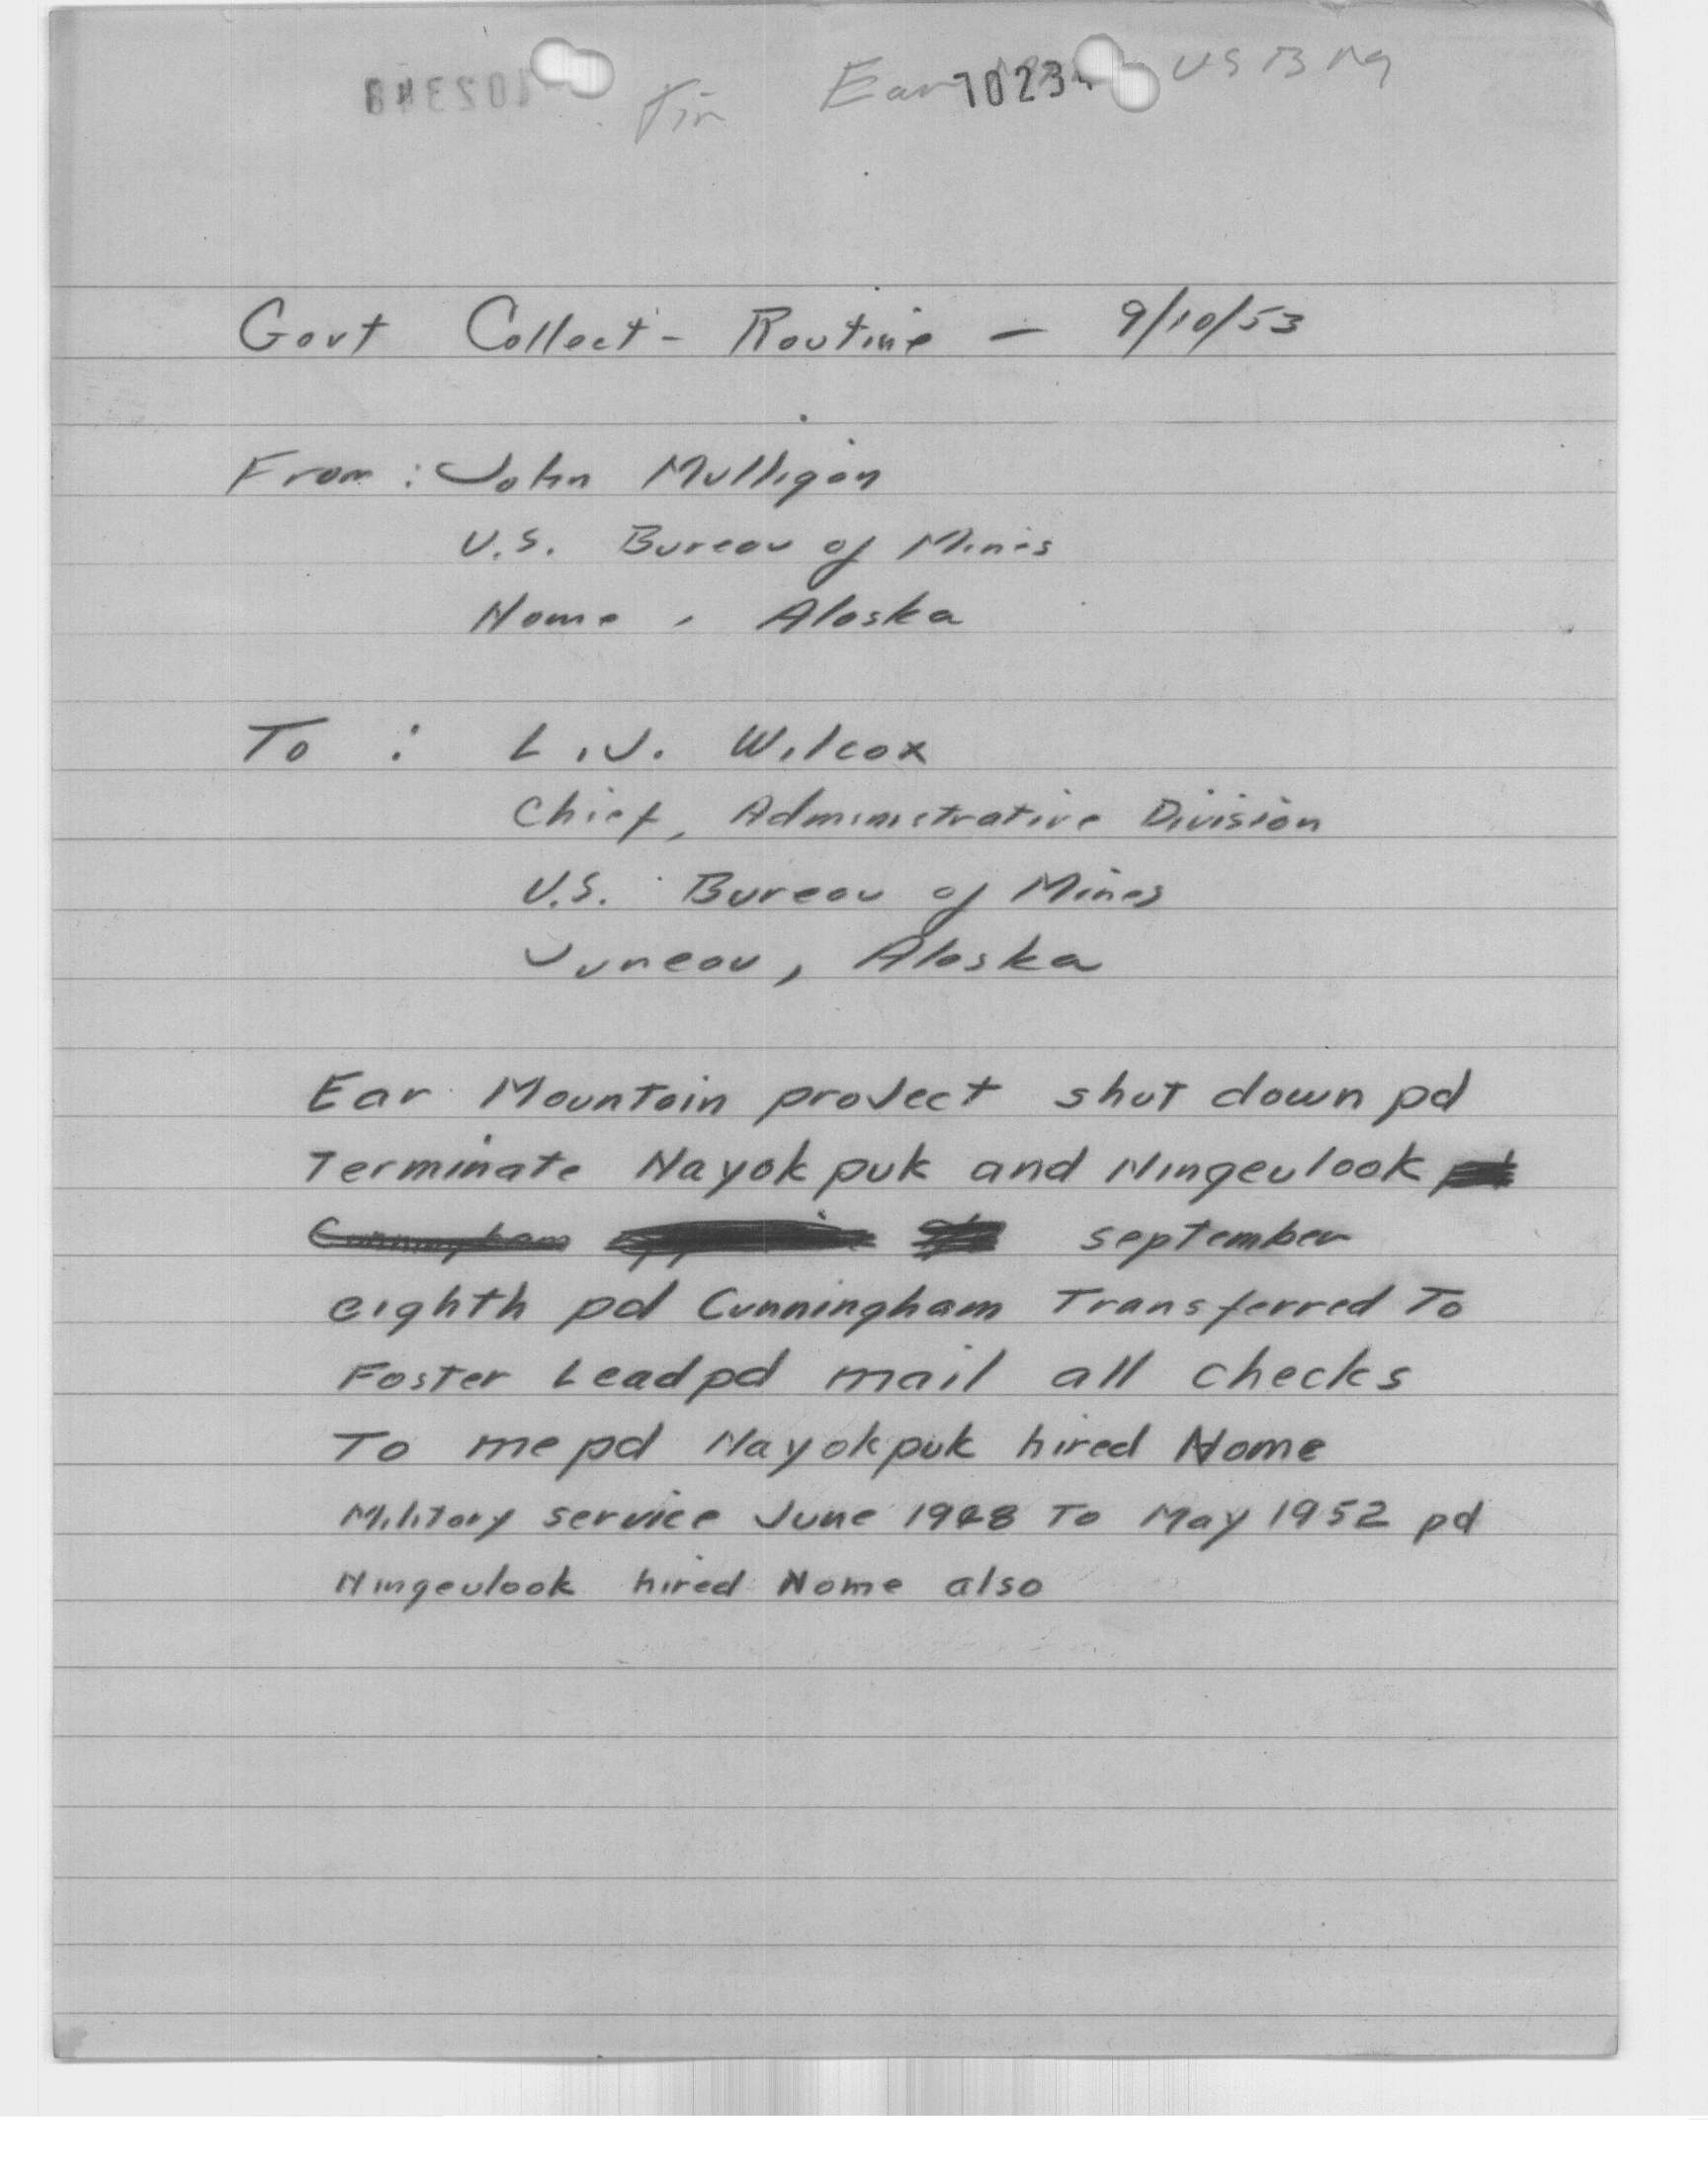 Tin Ear 10234 USBM
Govt Collect - Routine — 9/10/53
From : John Mulligan
U.S. Bureau of Mines
Nome, Alaska
To : L.J. Wilcox
Chief, Administrative Division
U.S. Bureau of Mines
Juneau, Alaska
Ear Mountain project shut down pd
Terminate Nayokpuk and Ningeulook
Cunningham september
eighth pd Cunningham Transferred To
Foster Lead pd mail all checks
To me pd Nayokpuk hired Nome
Military service June 1948 To May 1952 pd
Ningeulook hired Nome also